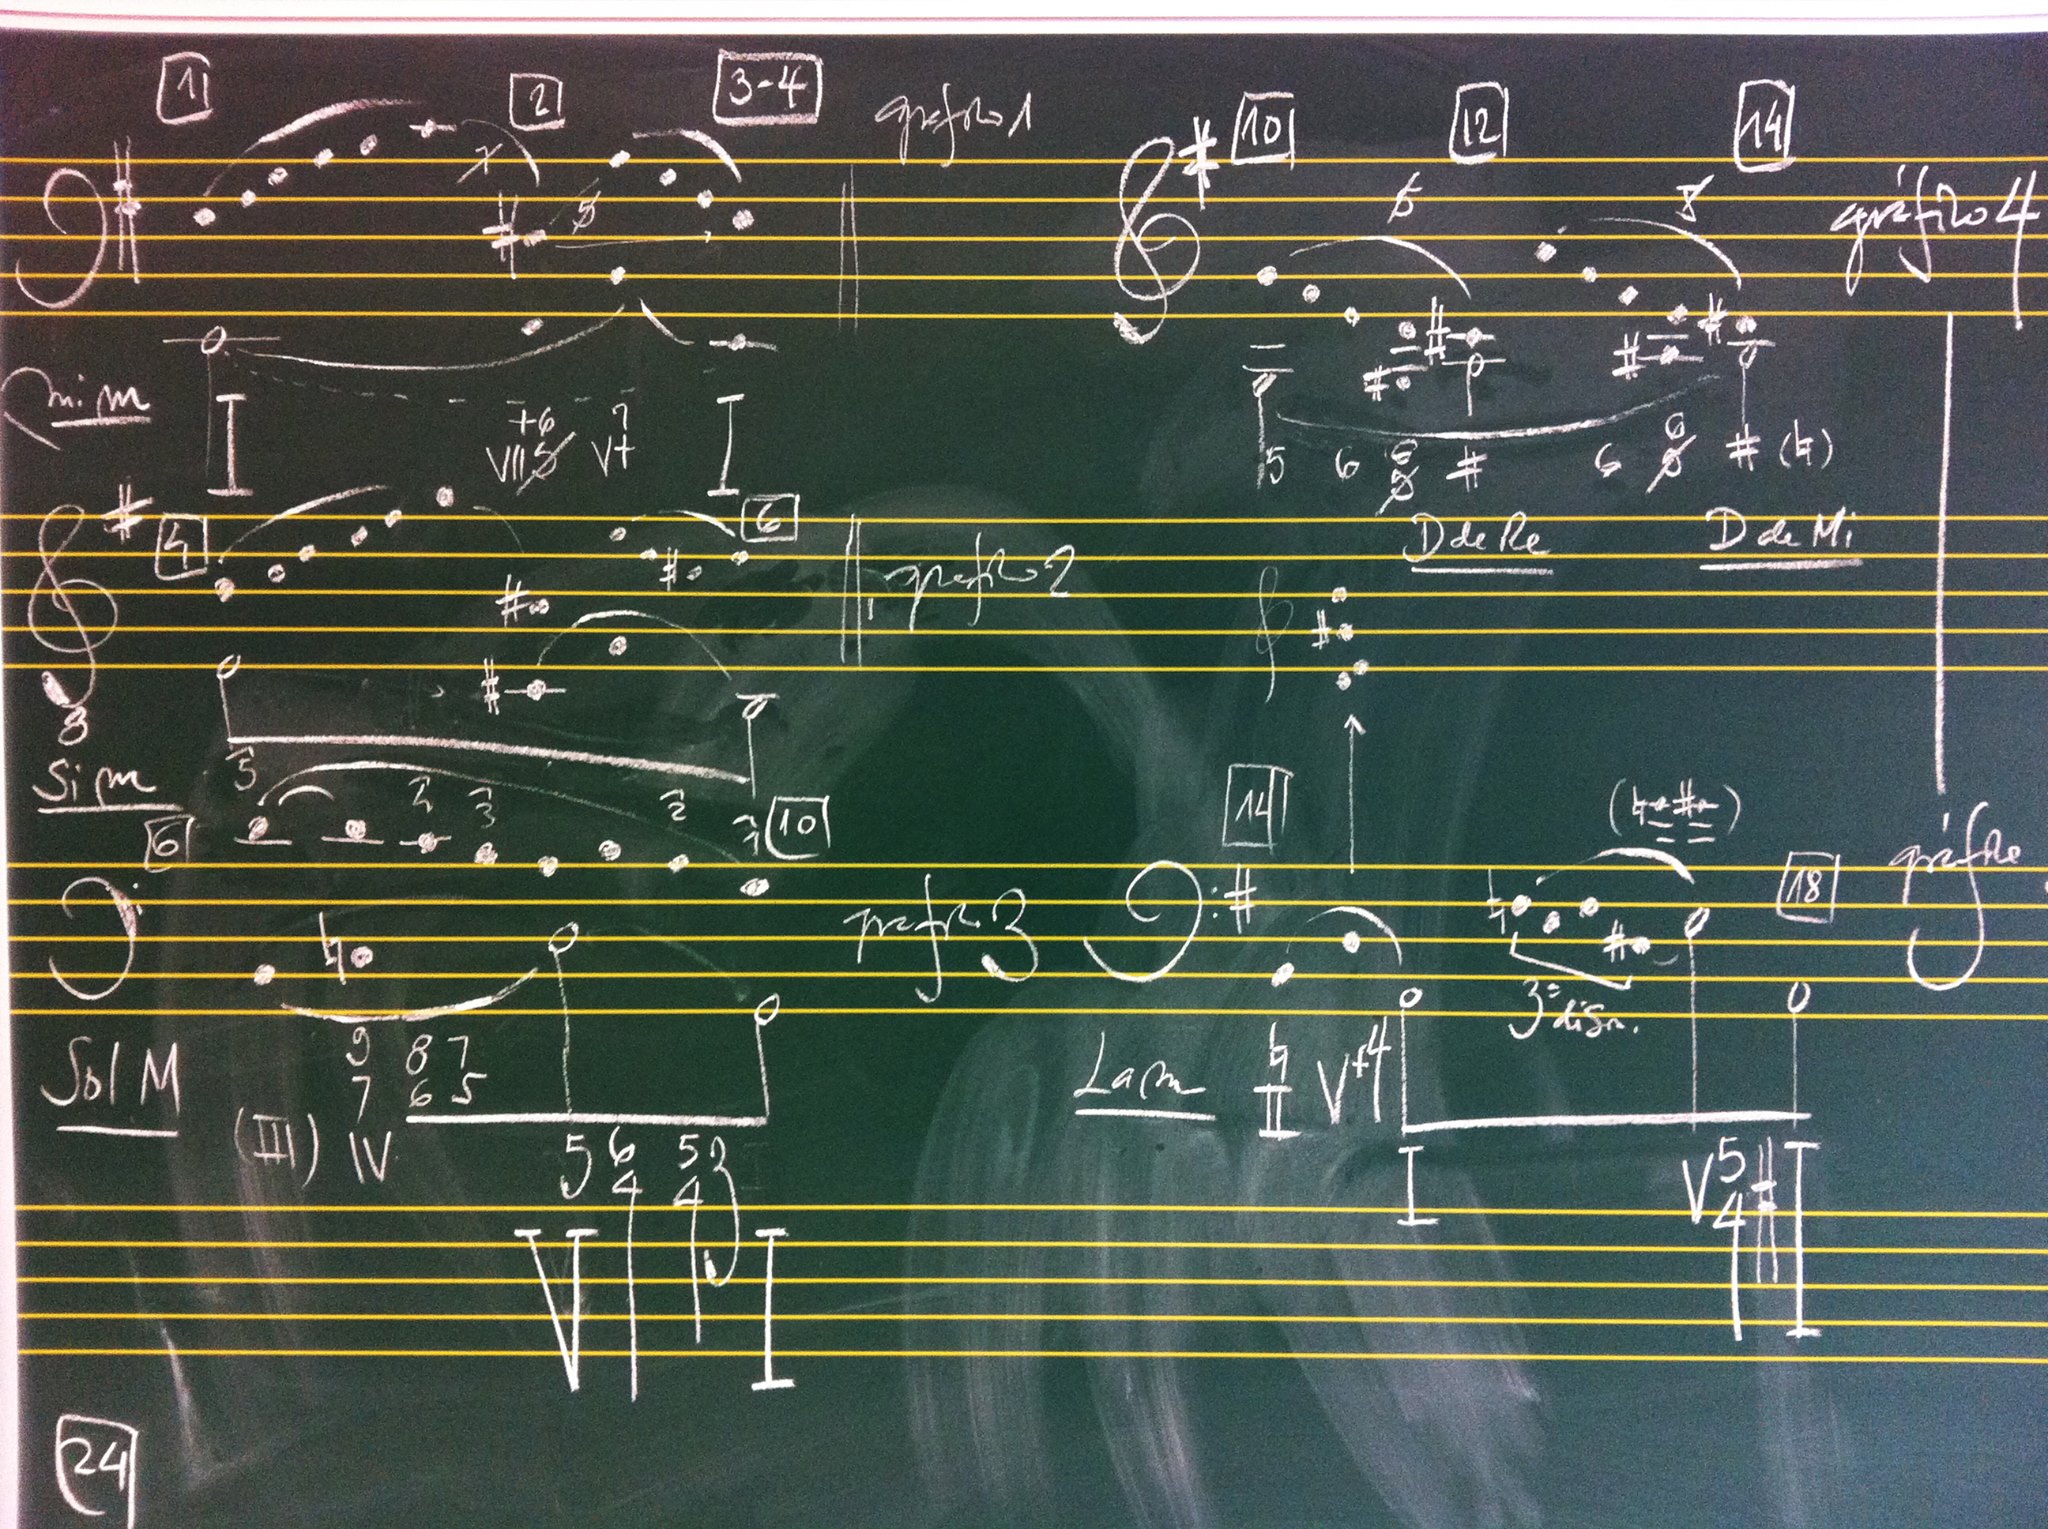 1 2 3-4 gráfico 1
7 5
mi m
I VII +6 5 V+ 7 I
4 6 gráfico 2
8
Si m
6 5 4 3 2 1 10 gráfico 3
Sol M
9 8 7
7 6 5
(III) IV
5 6 5 3
4 4
V I
24
10 12 14 gráfico 4
5 5
5 6 6 5 # 6 6 5 # (♮)
D de Re D de Mi
14 (♮ #) 18
3ª dism.
La m II V +4 I V 5 4 # I